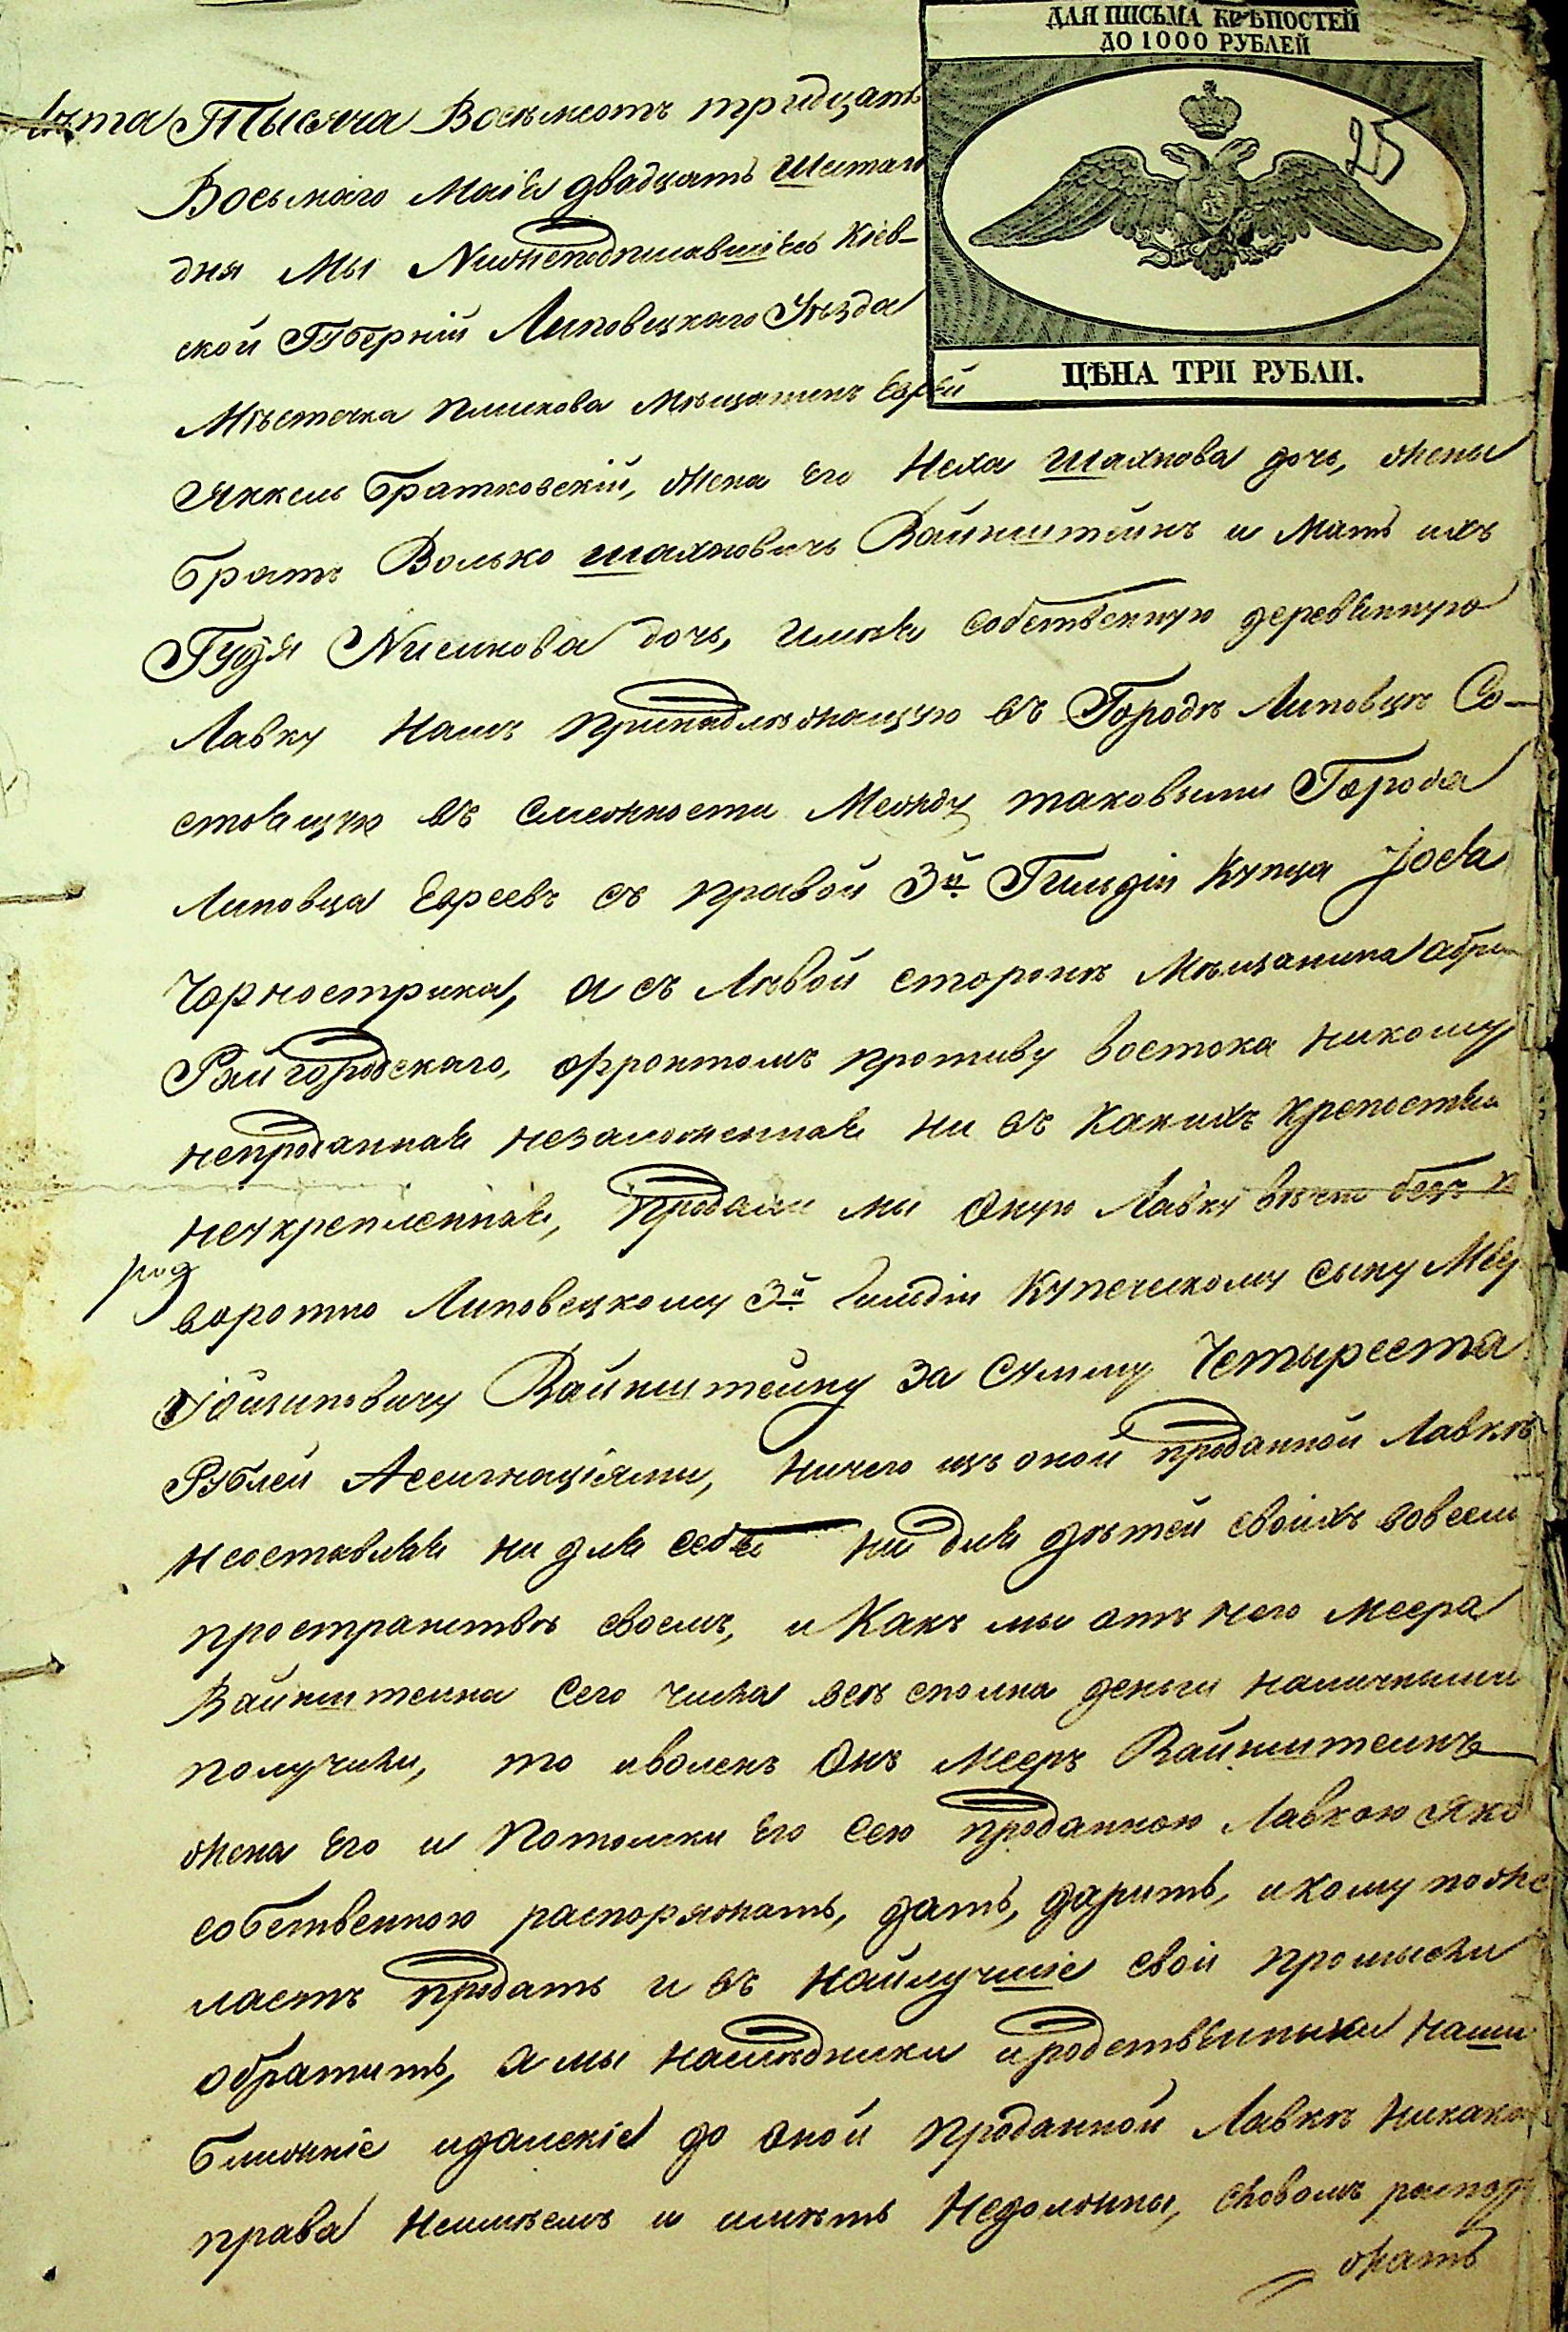 ДЛЯ ПИСЬМА КРѢПОСТЕЙ
ДО 1000 РУБЛЕЙ
25
ЦѢНА ТРИ РУБЛИ.
лѣта Тысяча Восемсотъ тридцать
Восьмаго Маія двадцать шестаго
дня Мы Нижеподписавшіесь Кіев-
ской Губерніи Липовецкаго Уѣзда
Мѣстечка Плискова Мѣщанинъ Еврей
Янкель Братковскій, жена его Неха шахнова дочь, жены
братъ Волько шахновичъ Вайнштейнъ и Мать ихъ
Гудя Нисинова дочь, имѣя собственную деревянную
Лавку Намъ принадлежащую въ Городѣ Липовцѣ Со-
стоящую въ смежности Между таковыми Города
Липовца Евреевъ съ правой 3й Гильдіи Купца Јося
Чорнострика, а съ Лѣвой стороны Мѣщанина
Райгородскаго, фронтомъ противу востока никому
непроданная незаложенная ни въ какихъ крепостях
неукрепленная, продали мы оную Лавку вѣчно безъ
воротно Липовецкому 3й Гильдіи Купеческому сыну
Вайнштейну за Сумму Четыреста
Рублей Ассигнаціями, ничего изъ оной проданной Лавкѣ
неоставляя ни для себя ни для дѣтей своихъ вовсемъ
пространствѣ своемъ, и Какъ мы отъ него меера
Вайнштейна Сего числа всѣ сполна деньги наличными
получили, то иволенъ Онъ Мееръ Вайнштейнъ
жена Его и Потомки Его Сею проданною Лавкою яко
собственною распоряжать, дать, дарить, икому поже
лаетъ продать и въ наилучшіе свои промысли
обратить, а мы наслѣдники иродственники наши
ближніе идалекіе до Оной проданной Лавкѣ никако
права Неимѣемъ и имѣть Недолжны, словомъ распоря
жать